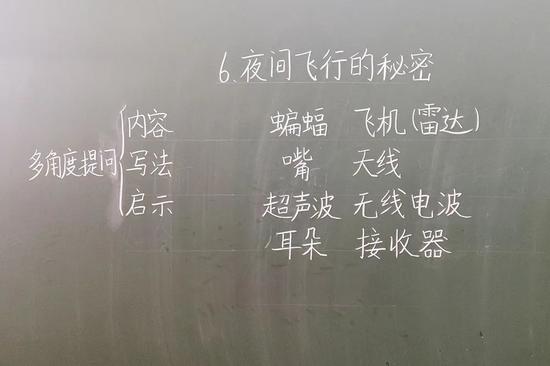 6.夜间飞行的秘密
内容 蝙蝠 飞机(雷达)
多角度提问 写法 嘴 天线
启示 超声波 无线电波
耳朵 接收器